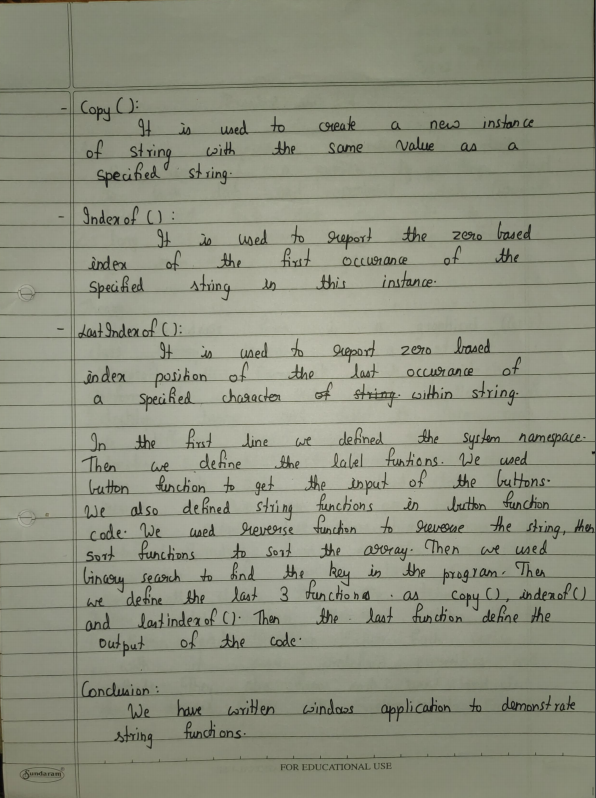 - Copy():
It is used to create a new instance
of string with the same value as a
specified string.
- Indexof():
It is used to report the zero based
index of the first occurance of the
specified string in this instance.
- LastIndexof():
It is used to report zero based
index position of the last occurance of
a specified character of string. within string.
In the first line we defined the system namespace.
Then we define the label funtions. We used
button function to get the input of the buttons.
We also defined string functions in button function
code. We used reverse function to reverse the string, then
sort functions to sort the array. Then we used
binary search to find the key in the program. Then
we define the last 3 functions. as copy(), indexof()
and lastindexof(). Then the. last function define the
output of the code.
Conclusion:
We have written windows application to demonstrate
string functions.
Sundaram
FOR EDUCATIONAL USE